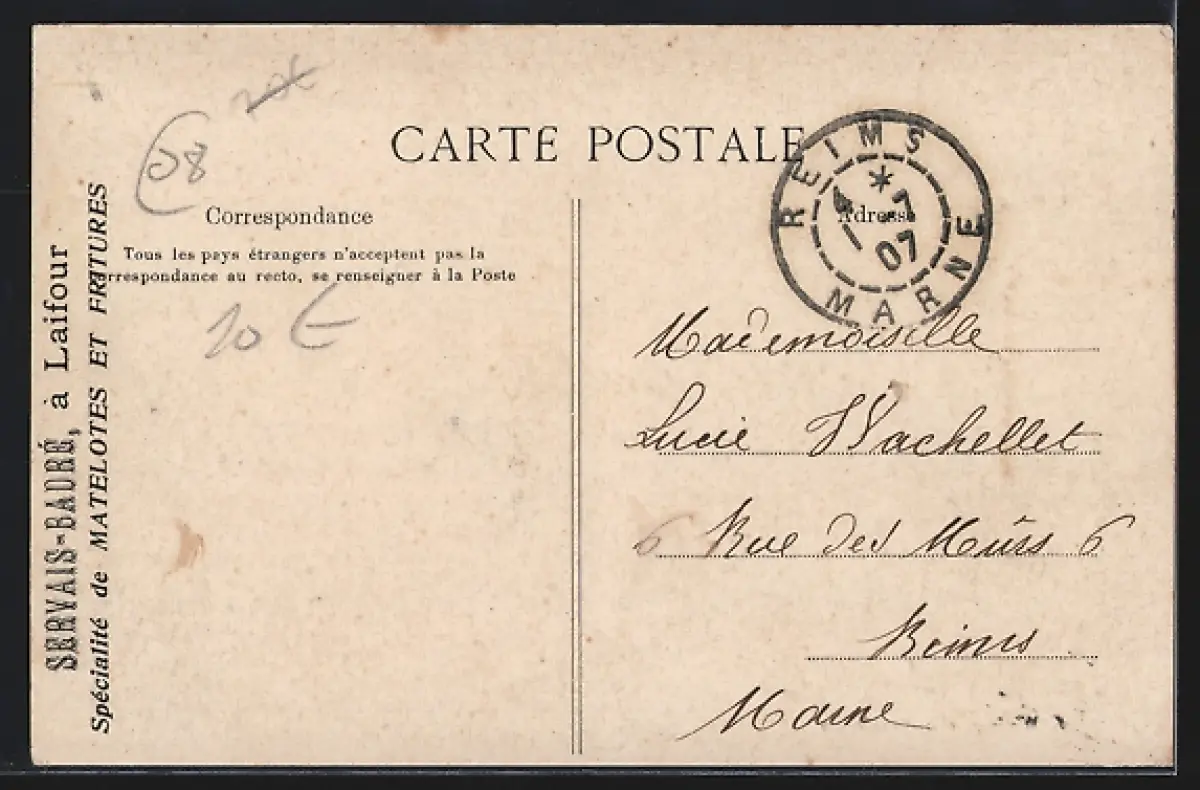 CARTE POSTALE
Correspondance
Tous les pays étrangers n'acceptent pas la
rrespondance au recto, se renseigner à la Poste
08
10 €
SERVAIS-BAURÉ, à Laifour
Spécialité de MATELOTES ET FRITURES
REIMS
4 - 7
07
MARNE
Adresse
Mademoiselle
Lucie Wachellet
6 Rue des Mûrs 6
Reims
Marne